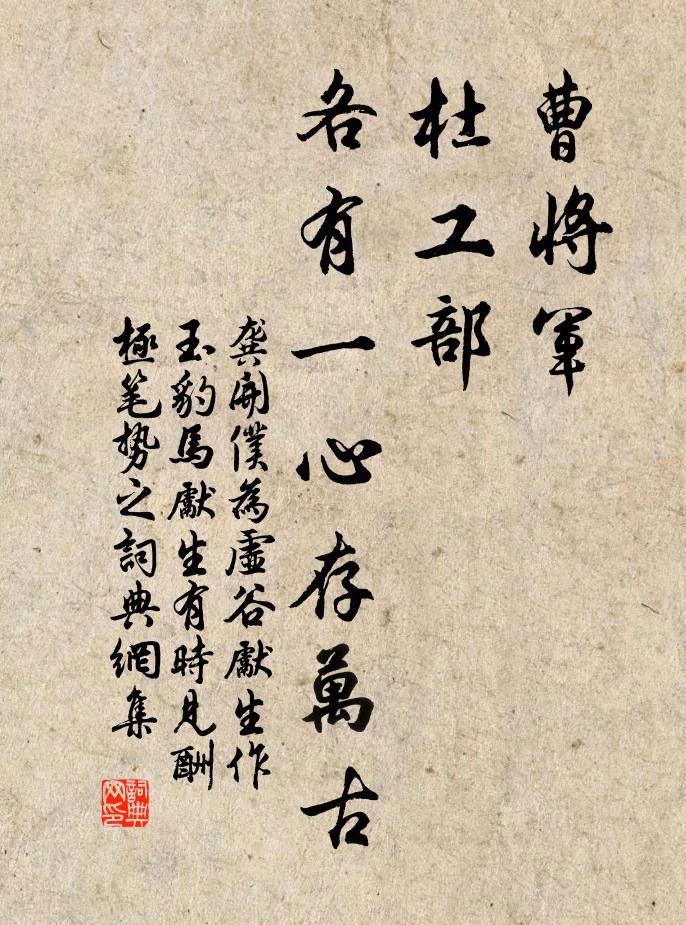 曹將軍
杜工部
各有一心存萬古
龔開僕為虛谷獻生作
玉豹馬獻生有時見酬
極笔势之詞典網集
詞典
网印